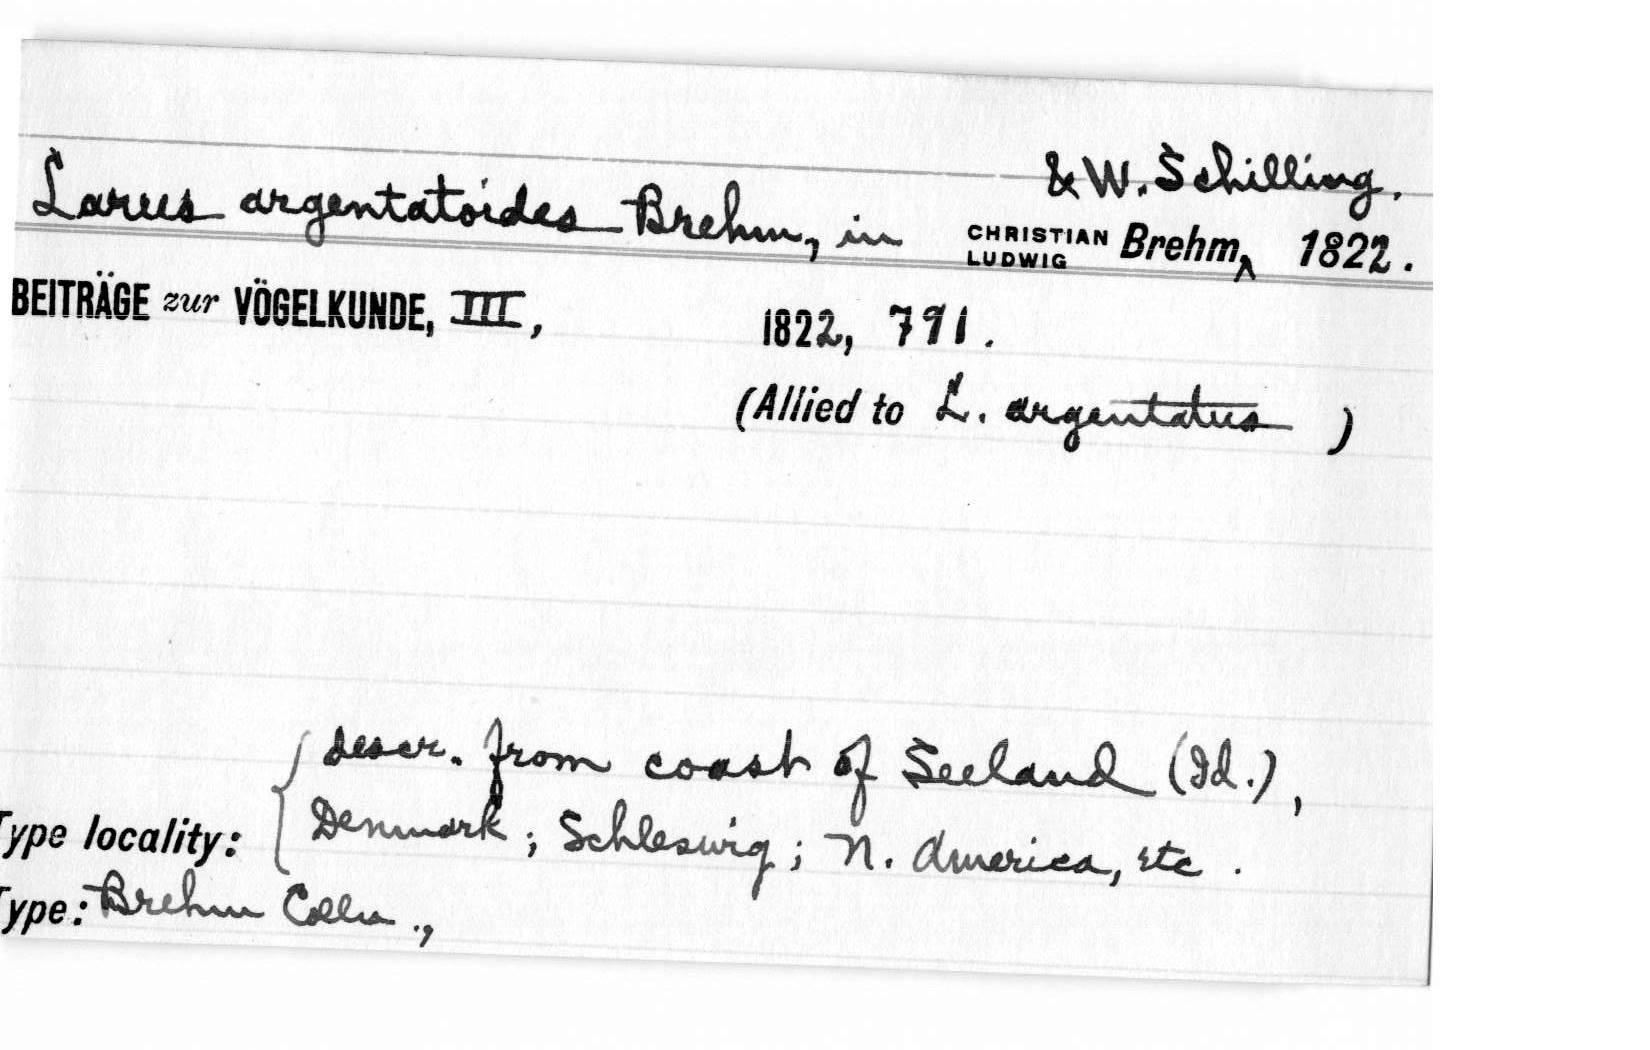 & W. Schilling.
Larus argentatoides Brehm, in CHRISTIAN LUDWIG Brehm^ 1822.
BEITRÄGE zur VÖGELKUNDE, III, 1822, 791.
(Allied to L. argentatus )
descr. from coast of Seeland (Id.),
Type locality: Denmark; Schleswig; N. America, etc.
Type: Brehm Colln.,